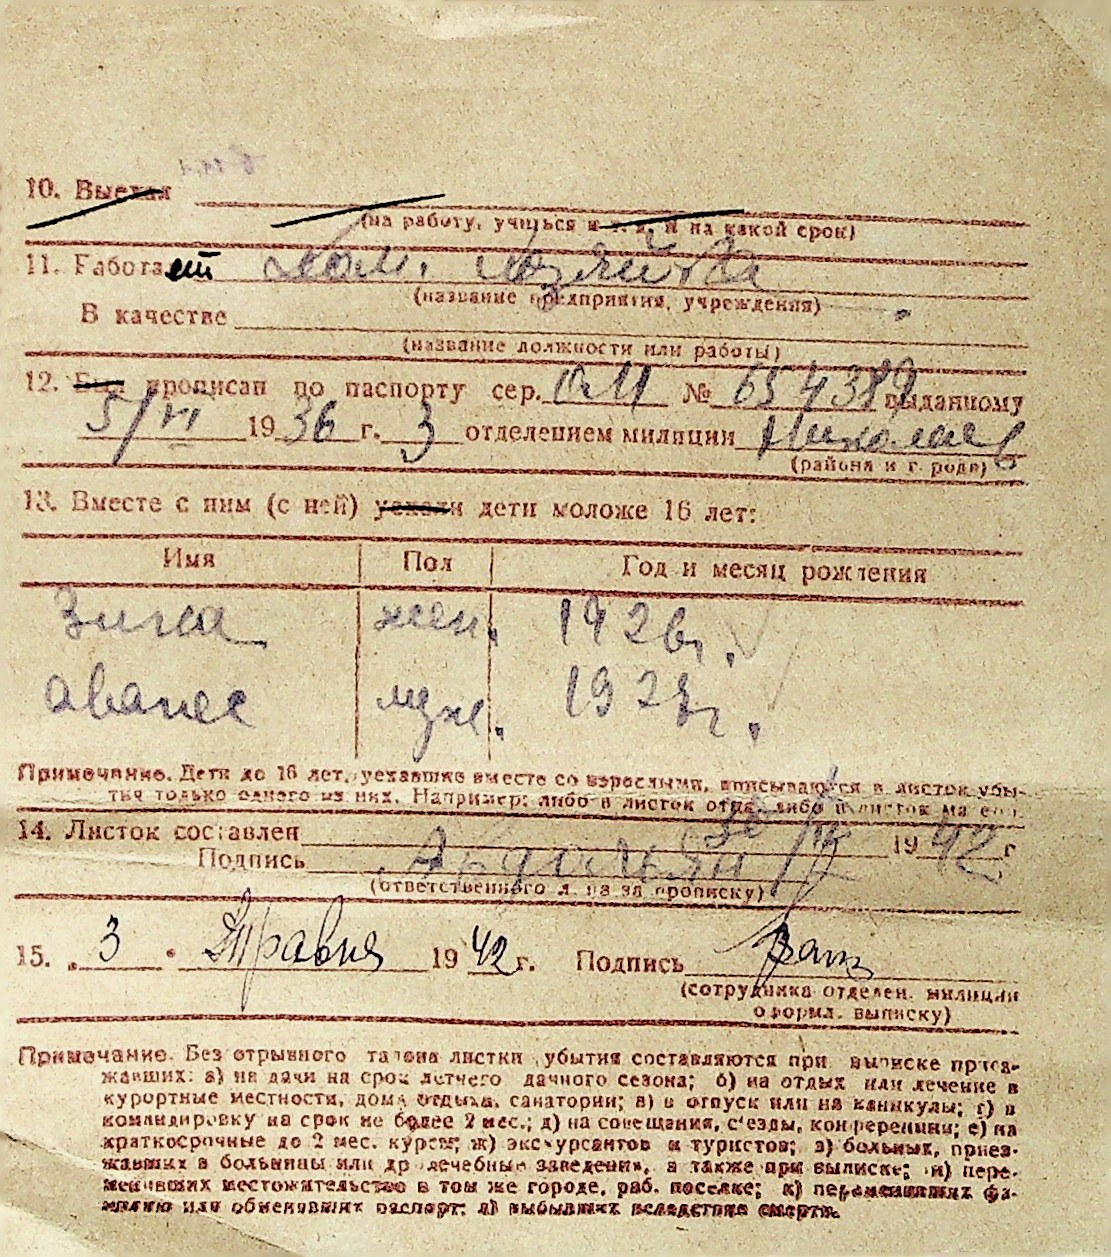 10. Выехал
(на работу, учиться и т. д. и на какой срок)
11. Работает Дом. хозяйка
(название предприятия, учреждения)
В качестве
(название должности или работы)
12. Был прописан по паспорту сер. № 654389 выданному
5/VI 1936 г. 3 отделением милиции Николаев
(района и города)
13. Вместе с ним (с ней) уехали дети моложе 16 лет:
Имя Пол Год и месяц рождения
Зина жен. 1926г.
Аванес муж. г.
Примечание. Дети до 16 лет, уехавшие вместе со взрослыми, вписываются в листок убы-
тия только одного из них. Например: либо в листок отца, либо в листок матери.
14. Листок составлен 1942 г
Подпись
(ответственного лица за прописку)
15. „3" Травня 1942 г. Подпись
(сотрудника отделен. милиции
оформл. выписку)
Примечание. Без отрывного талона листки убытия составляются при выписке приез-
жавших: а) на дачи на срок летнего дачного сезона; б) на отдых или лечение в
курортные местности, дома отдыха, санатории; в) в отпуск или на каникулы; г) в
командировку на срок не более 2 мес.; д) на совещания, с'езды, конференции; е) на
краткосрочные до 2 мес. курсы; ж) экскурсантов и туристов; з) больных, приез-
жавших в больницы или др лечебные заведения, а также при выписке; и) пере-
менивших местожительство в том же городе, раб. поселке; к) переменивших фа-
милию или обменявших паспорт; л) выбывших вследствие смерти.